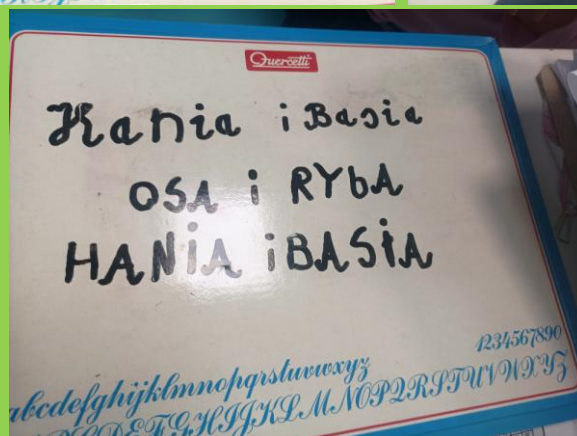 Quercetti
Hania i Basia
OSA i RYbA
HANiA i BASiA
1234567890
abcdefghijklmnopqrstuvwxyz
ABCDEFGHIJKLMNOPQRSTUVWXYZ